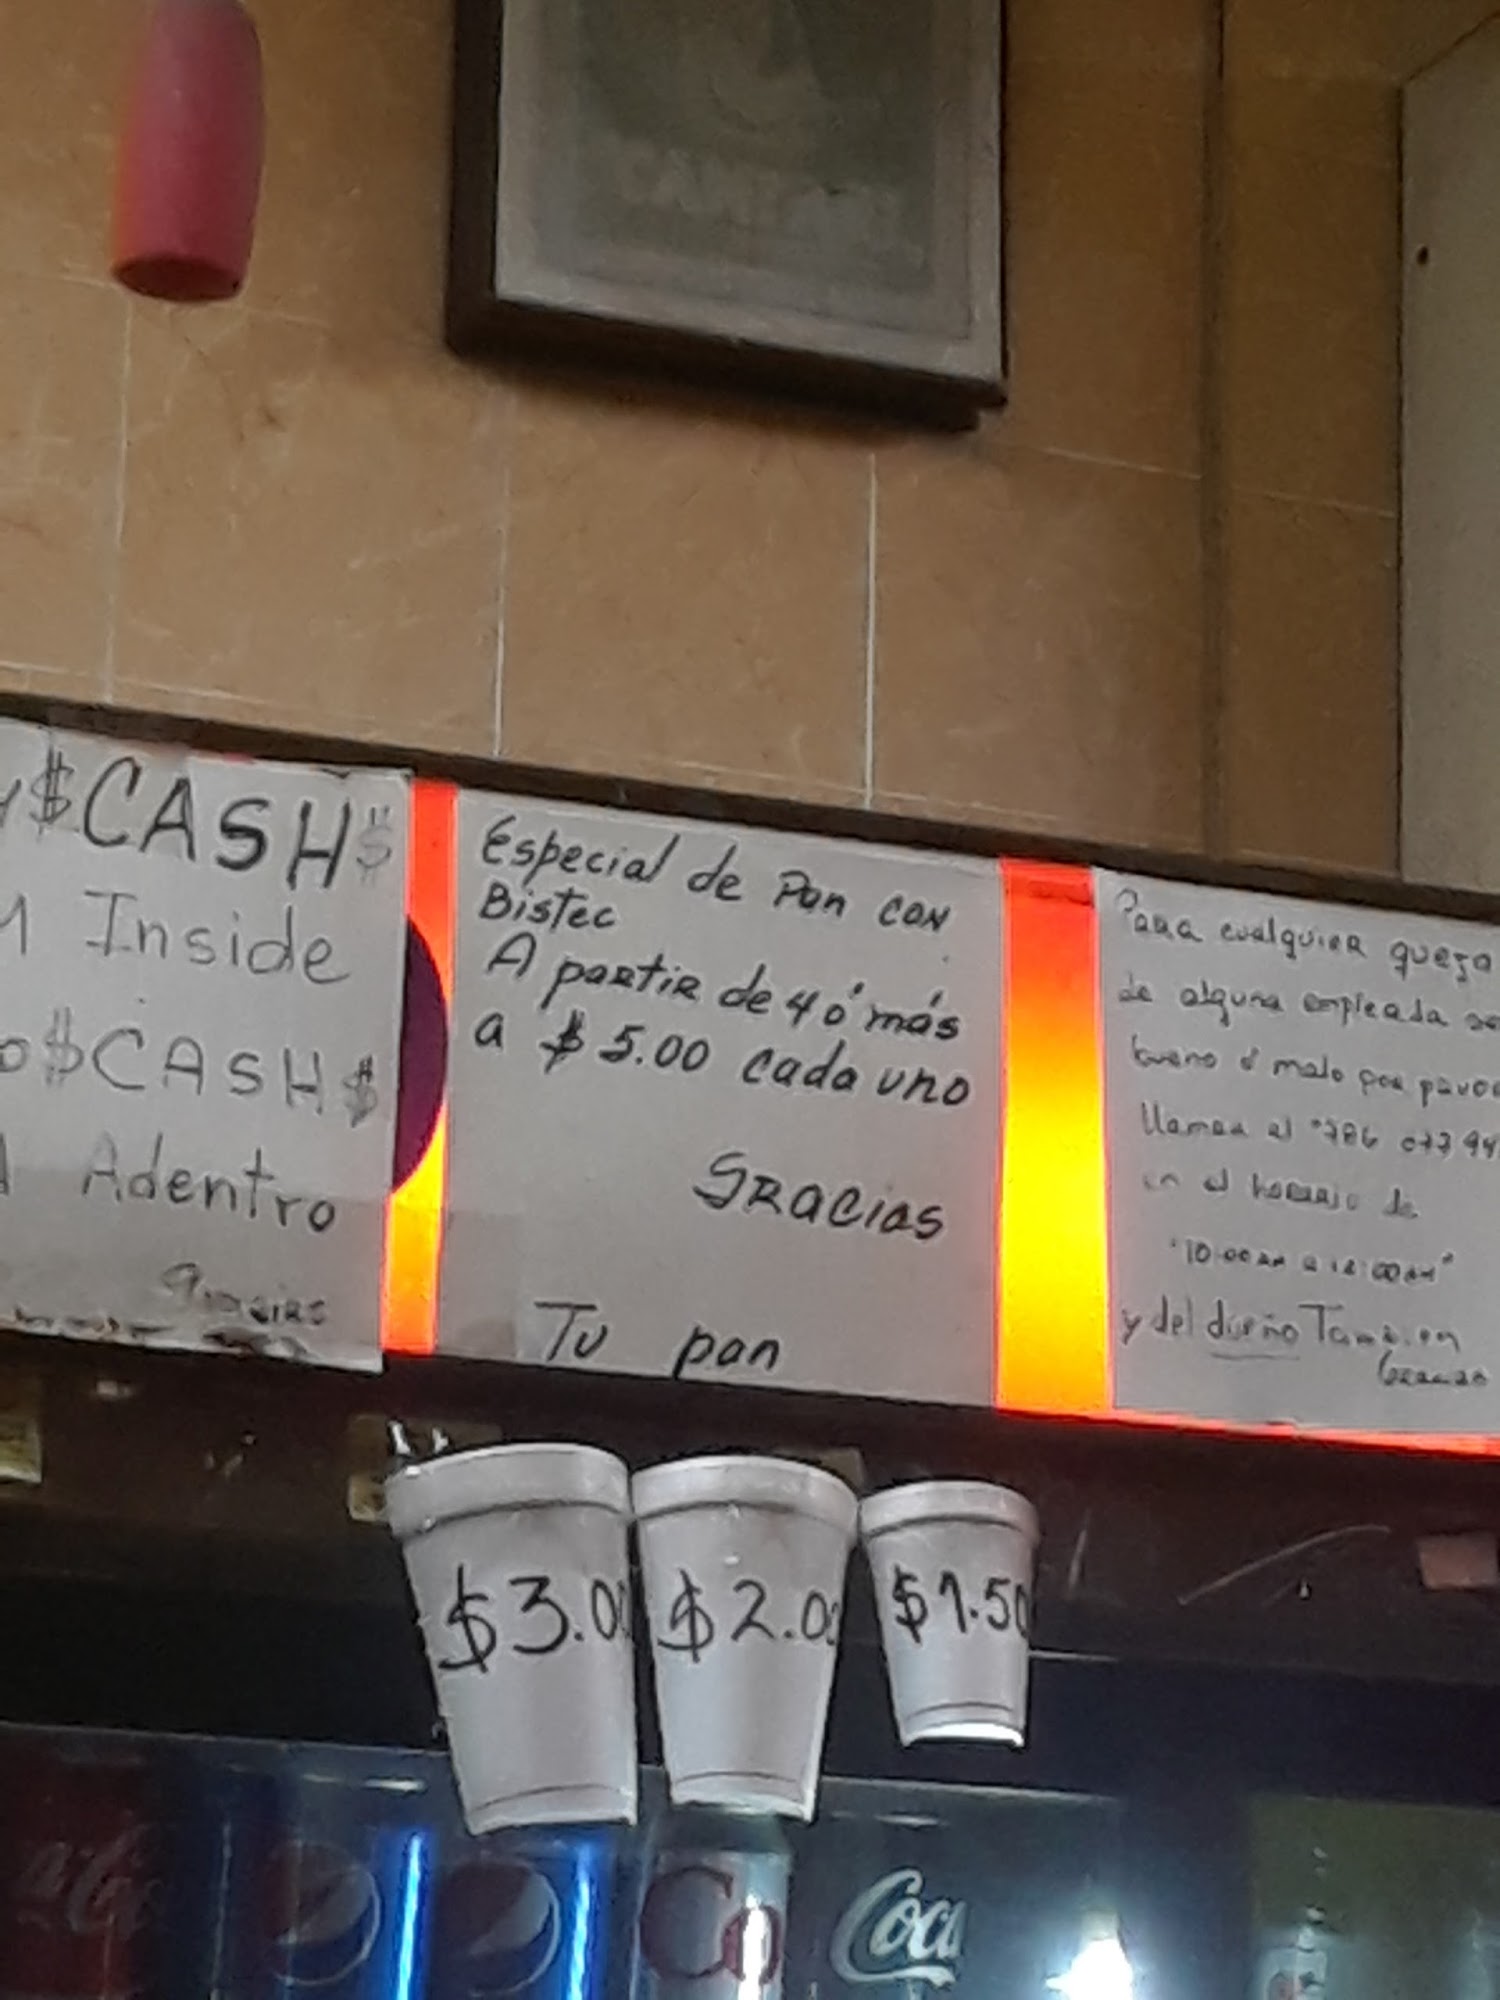 $CASH$
Inside
$CASH$
Adentro
Gracias
Especial de Pan con
Bistec
A partir de 4 ó más
a $5.00 cada uno
Gracias
Tu pan
Para cualquier queja
de alguna empleada
bueno ó malo por
llamar al
en el horario de
y del dueño
Gracias
$3.00
$2.00
$1.50
Coca